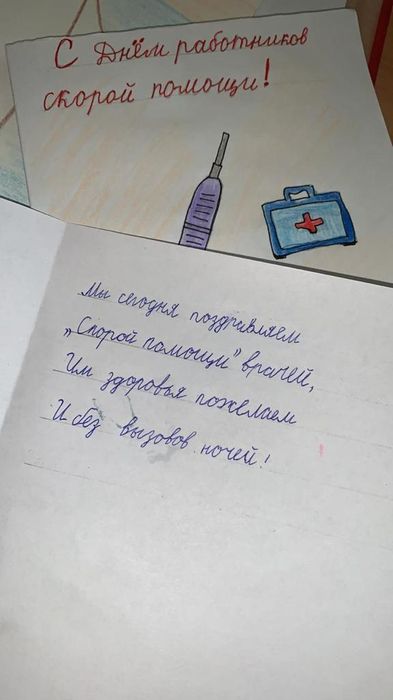 С Днём работников
скорой помощи!
Мы сегодня поздравляем
„Скорой помощи" врачей,
Им здоровья пожелаем
И без вызовов ночей!